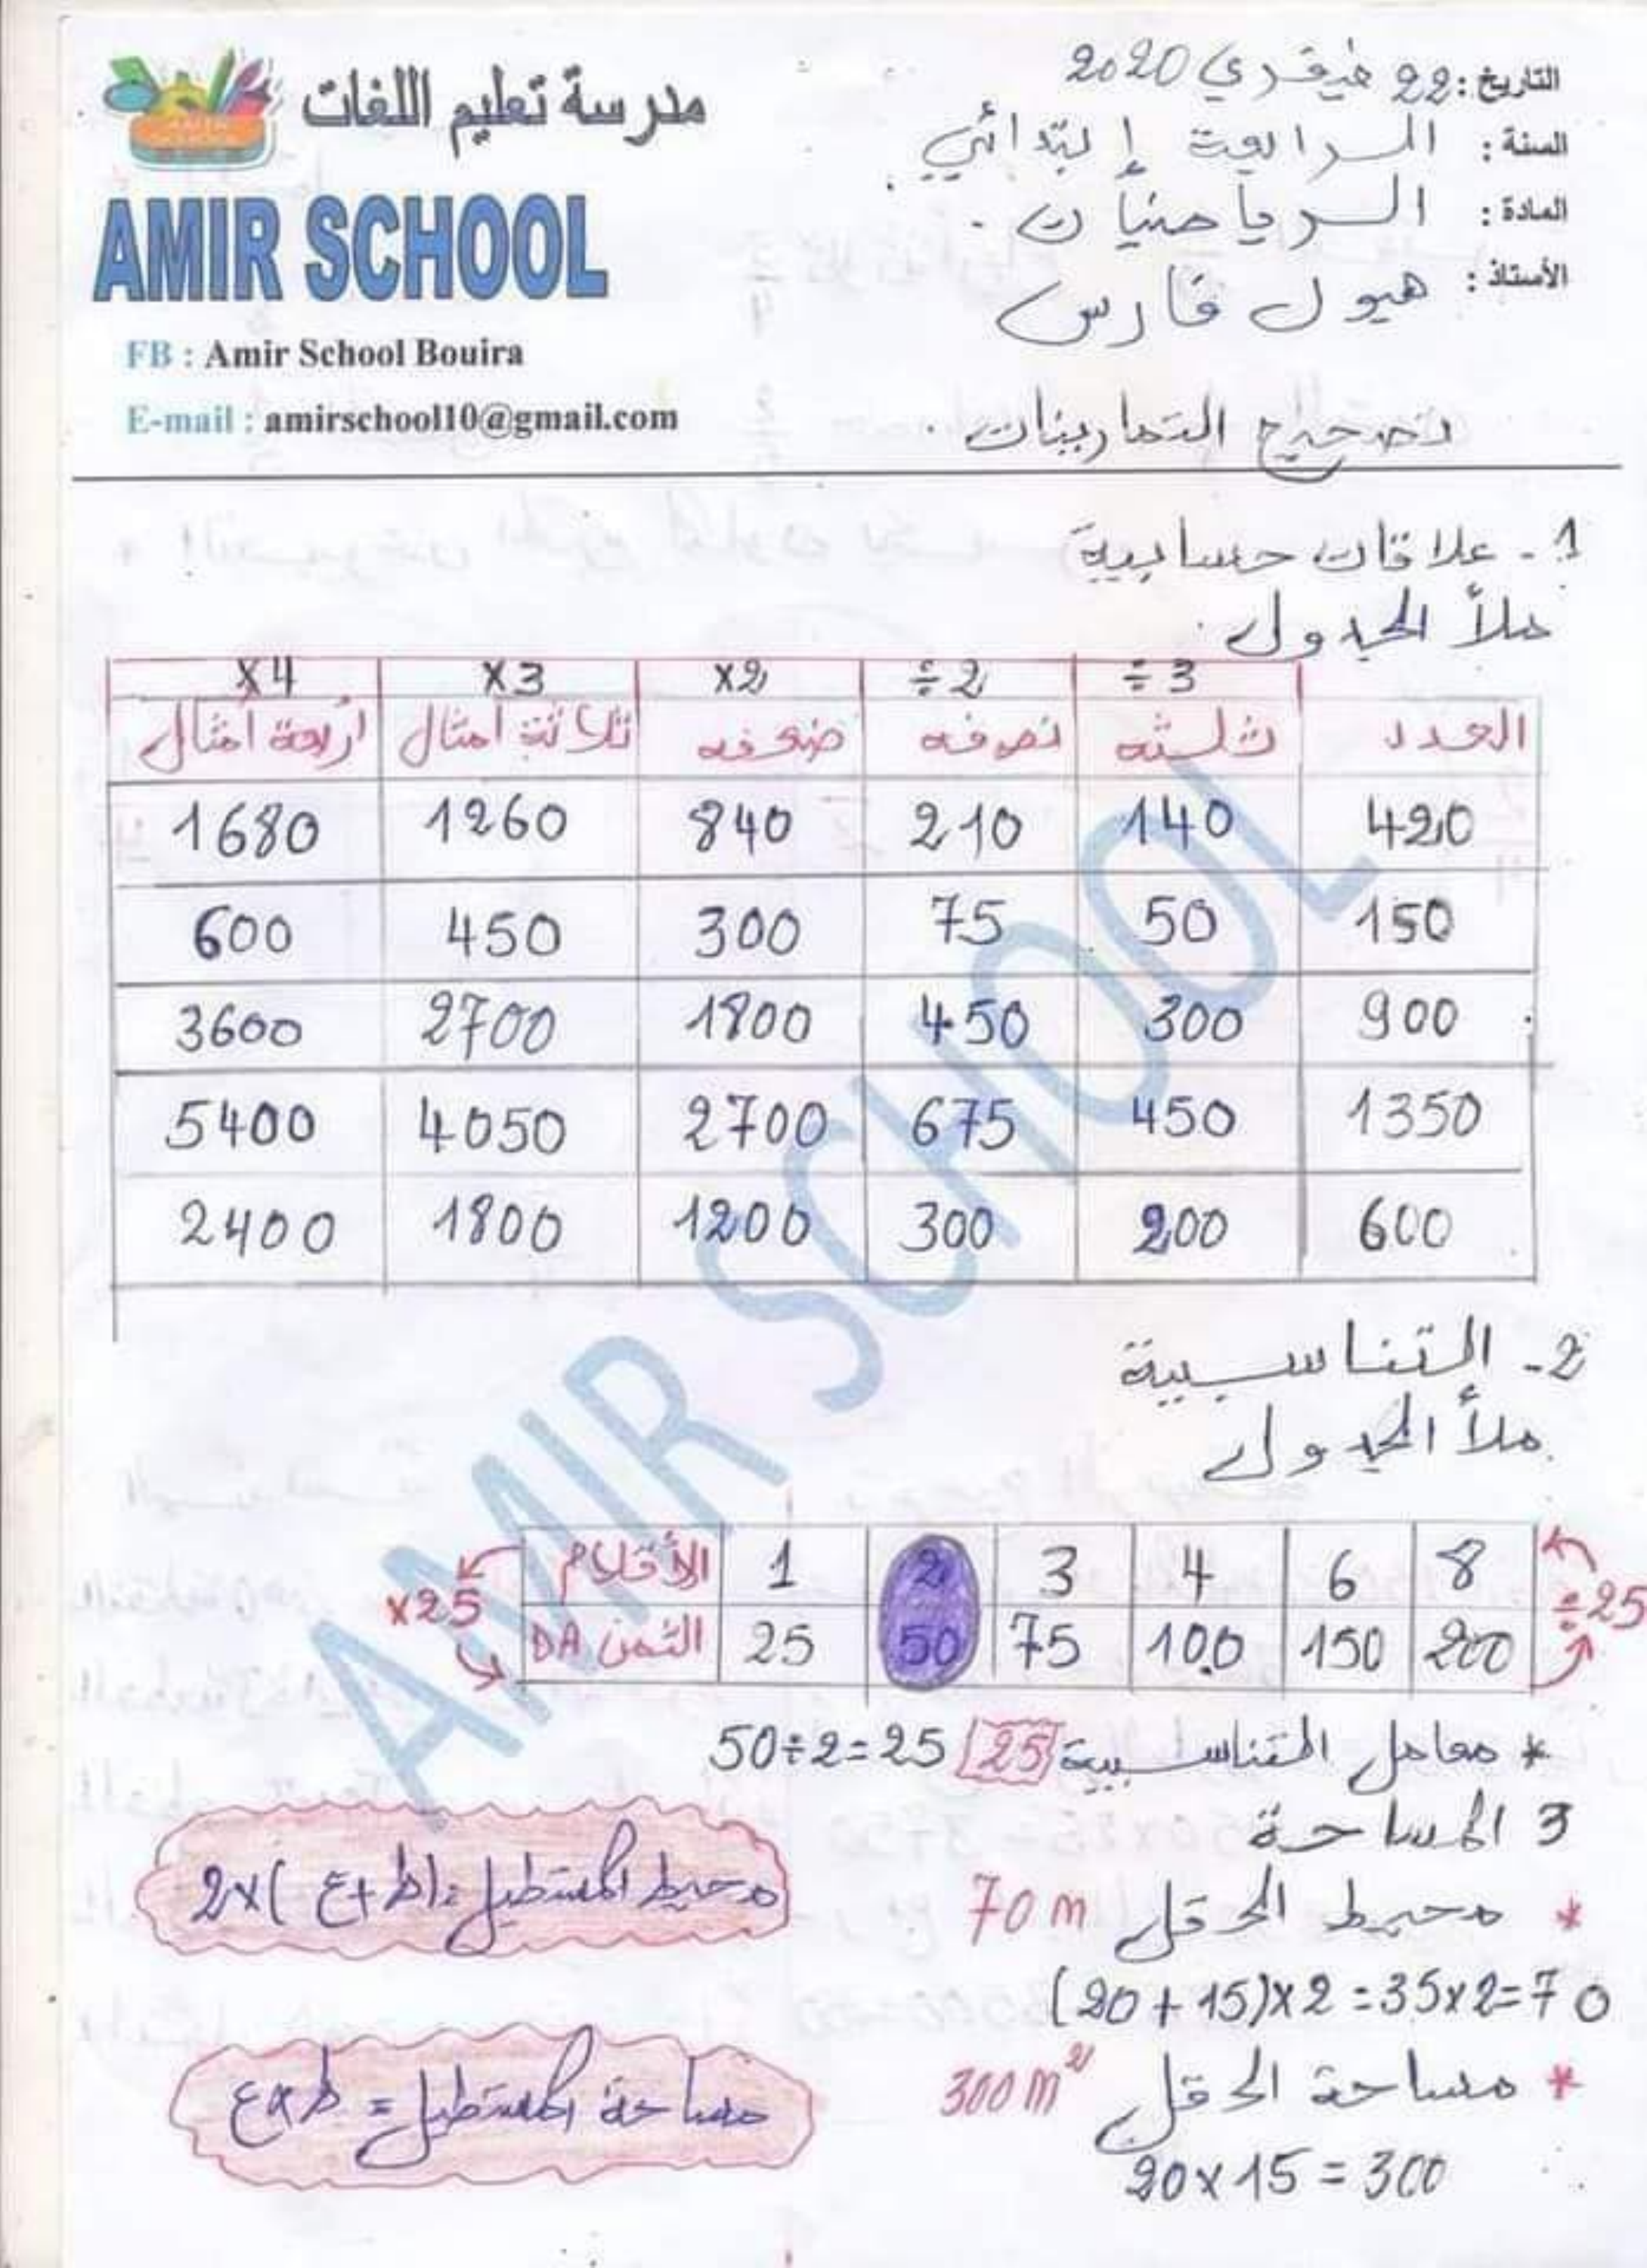 مدرسة تعليم اللغات
AMIR SCHOOL
FB : Amir School Bouira
E-mail : amirschool10@gmail.com
التاريخ: 22 فيفري 2020
السنة : الرابعة إبتدائي
المادة : الرياضيات .
الأستاذ : هيول فارس
تصحيح التمارينات .
1 - علاقات حسابية
ملأ الجدول .
÷3 ÷2 ×2 ×3 ×4
العدد ثلثه نصفه ضعفه ثلاثة أمثال أربعة أمثال
420 140 210 840 1260 1680
150 50 75 300 450 600
900 300 450 1800 2700 3600
1350 450 675 2700 4050 5400
600 200 300 1200 1800 2400
2- التناسبية
ملأ الجدول
الأقلام 1 2 3 4 6 8
الثمن DA 25 50 75 100 150 200
×25
÷25
* معامل التناسبية 25 50÷2=25
3 المساحة
* محيط الحقل 70 m
(20+15)×2=35×2=70
محيط المستطيل = (ط+ع)×2
* مساحة الحقل 300 m²
20×15=300
مساحة المستطيل = ط×ع
AMIR SCHOOL